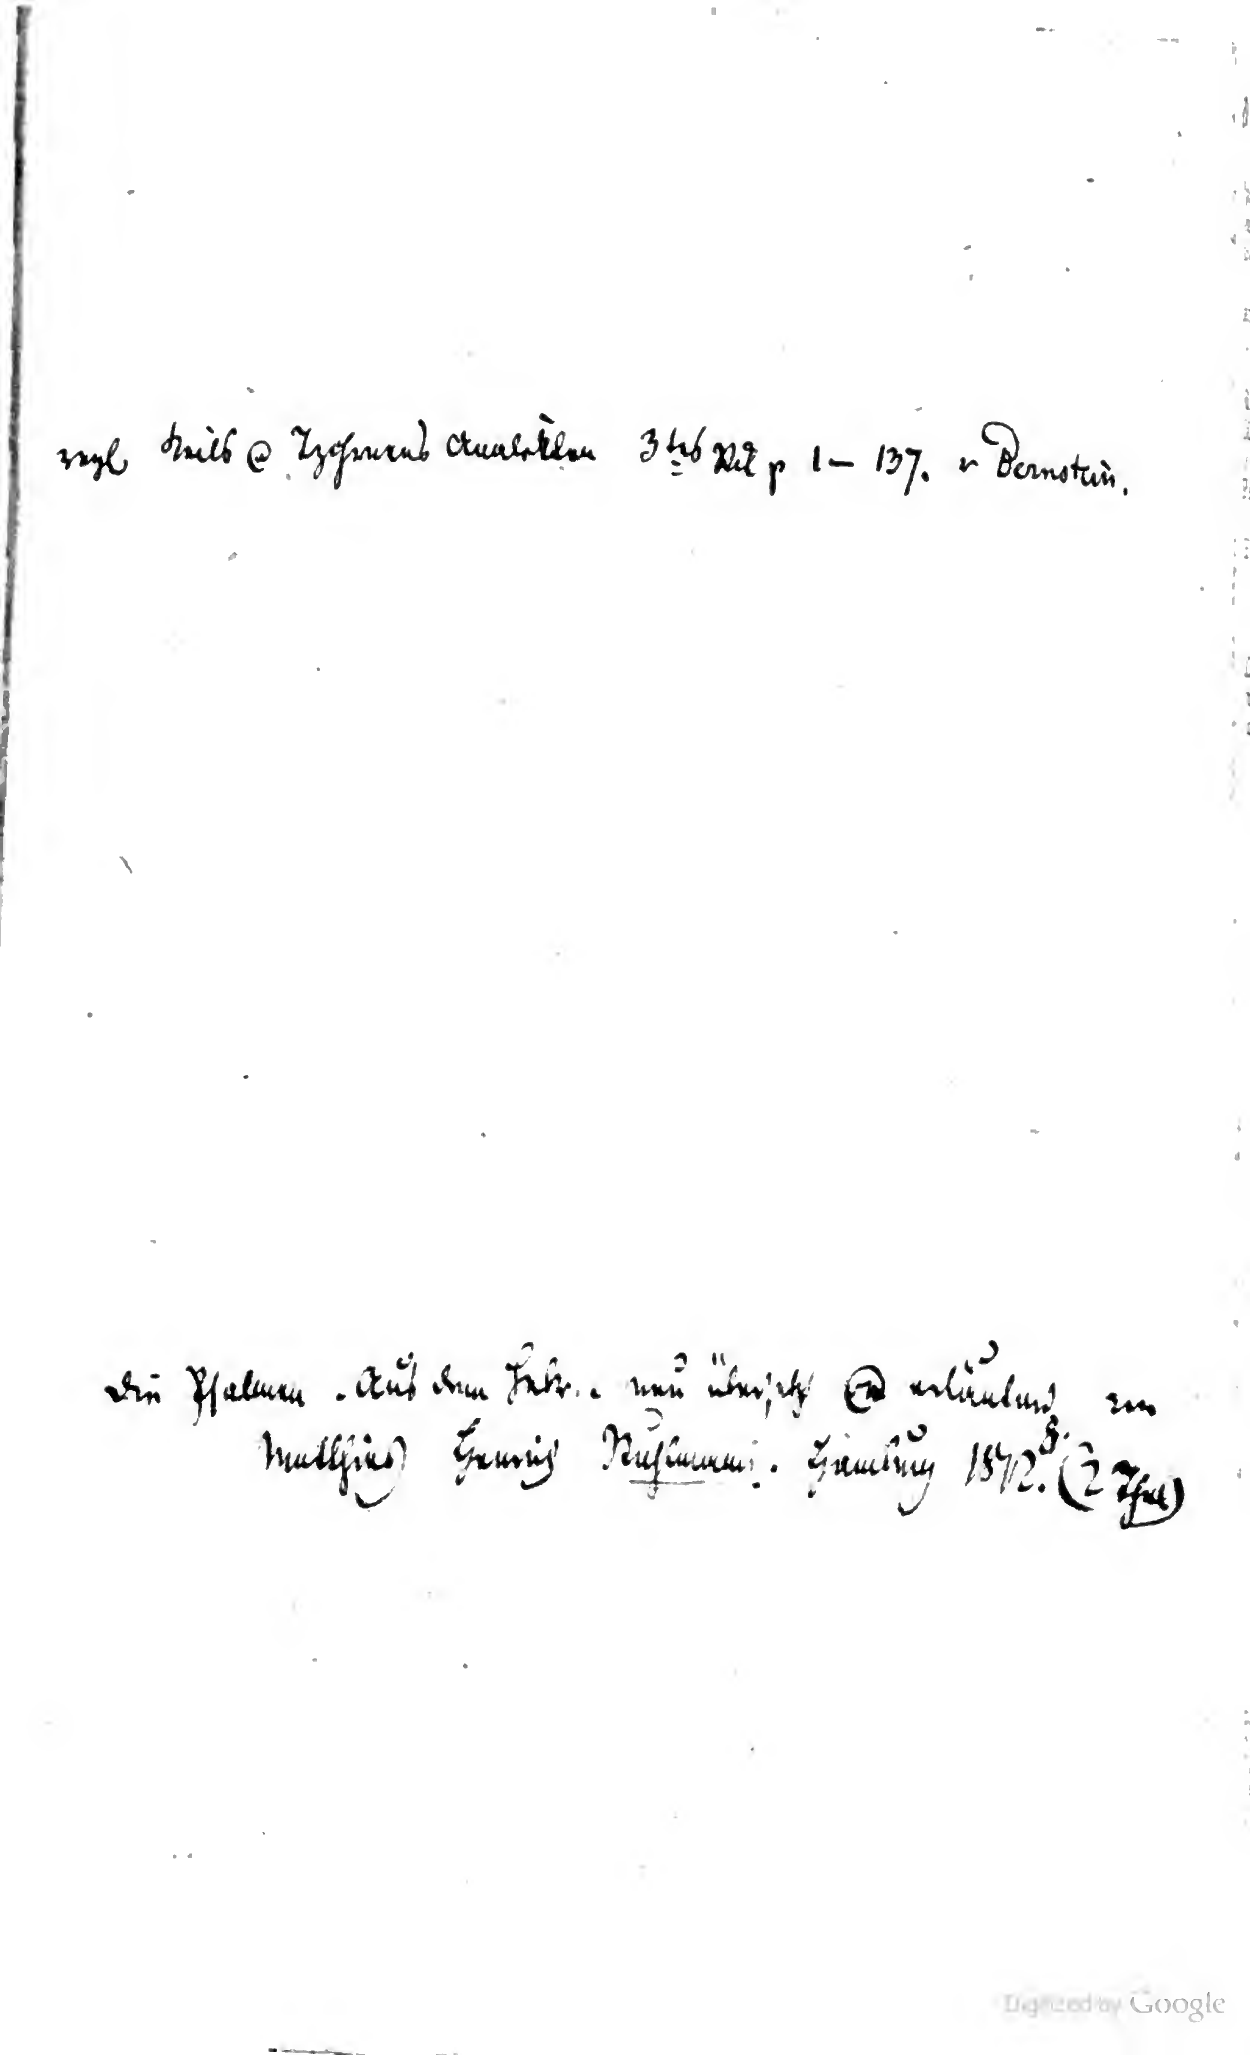 vergl Keils & Tzschirners Analekten 3tes Bd p 1 – 137. v Bernstein.
Die Psalmen. Aus dem Hebr. neu übersetzt & erläutert von
Matthias Heinrich Stuhlmann. Hamburg 1812. 8. (2 Thle)
Digitized by Google